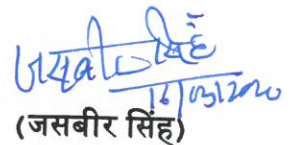 जसबीर सिंह
16/03/2020
(जसबीर सिंह)